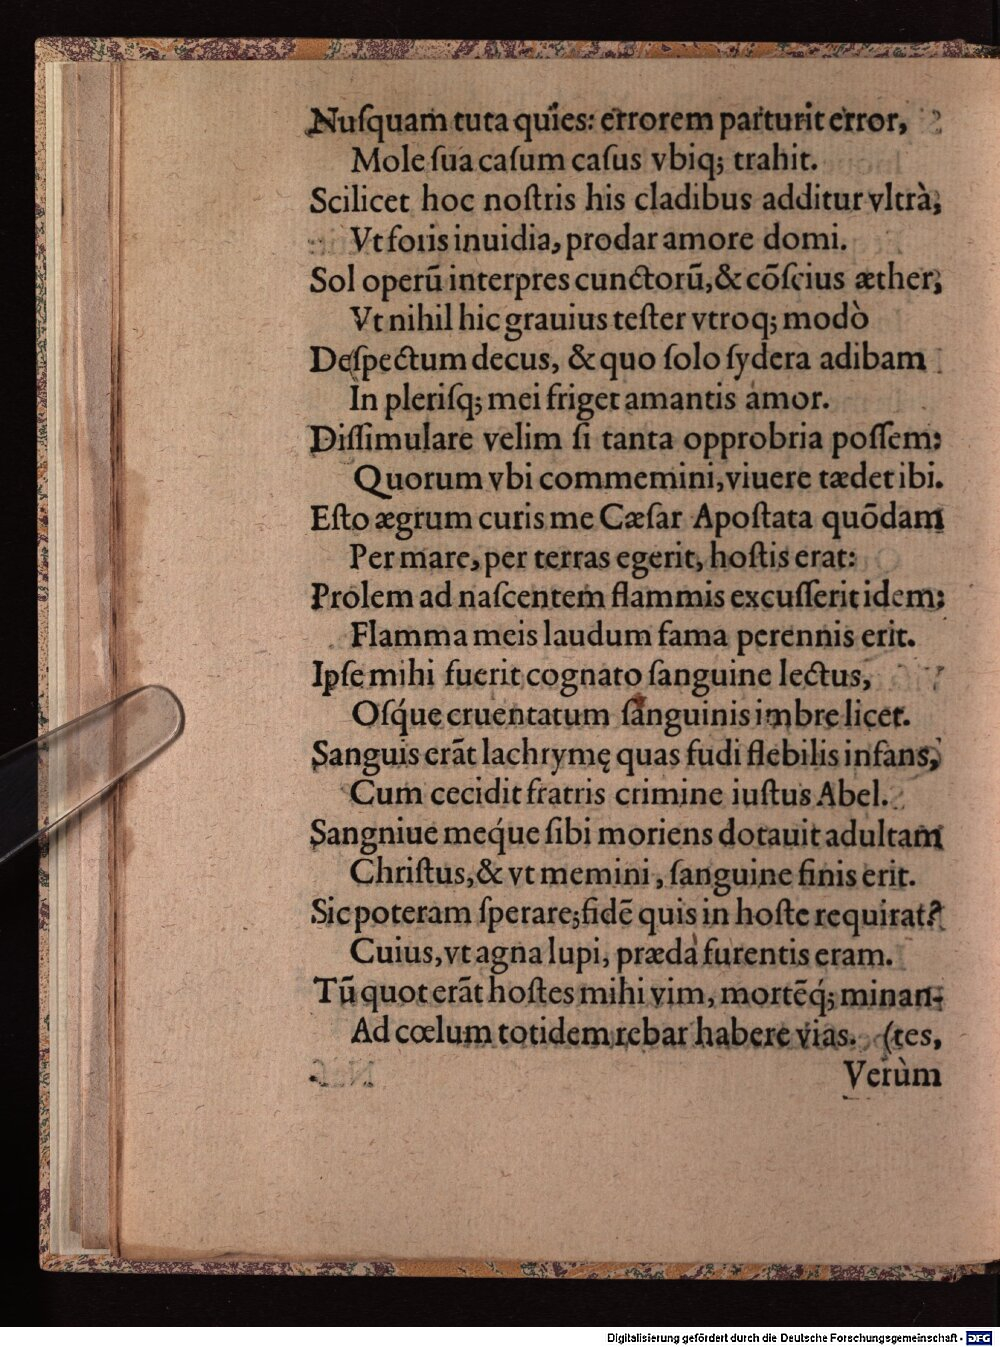 Nuſquam tuta quies: errorem parturit error,
Mole ſua caſum caſus vbiq; trahit.
Scilicet hoc noſtris his cladibus additur vltrà,
Vt foris inuidia, prodar amore domi.
Sol operū interpres cunctorū, & cōſcius æther,
Vt nihil hic grauius teſter vtroq; modò
Deſpectum decus, & quo ſolo ſydera adibam
In pleriſq; mei friget amantis amor.
Diſſimulare velim ſi tanta opprobria poſſem:
Quorum vbi commemini, viuere tædet ibi.
Eſto ægrum curis me Cæſar Apoſtata quōdam
Per mare, per terras egerit, hoſtis erat:
Prolem ad naſcentem flammis excuſſerit idem;
Flamma meis laudum fama perennis erit.
Ipſe mihi fuerit cognato ſanguine lectus,
Oſq́ue cruentatum ſanguinis imbre licet.
Sanguis erāt lachrymę quas fudi flebilis infans,
Cum cecidit fratris crimine iuſtus Abel.
Sangniue meq́ue ſibi moriens dotauit adultam
Chriſtus, & vt memini, ſanguine finis erit.
Sic poteram ſperare; fidē quis in hoſte requirat?
Cuius, vt agna lupi, præda furentis eram.
Tū quot erāt hoſtes mihi vim, mortēq́; minan-
Ad cœlum totidem rebar habere vias. (tes,
Verùm
Digitalisierung gefördert durch die Deutsche Forschungsgemeinschaft - DFG